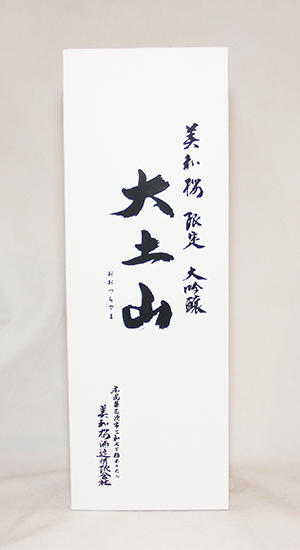 美和桜 限定 大吟醸
大土山
おおつちやま
広島県三次市三和町下板木二六二
美和桜酒造有限会社